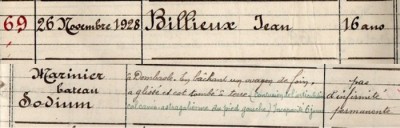 69 26 Novembre 1928 Billieux Jean 16 ans
Marinier
bateau
Sodium
à Dombasle, en bâchant un wagon de foin,
a glissé et est tombé à terre
du pied gauche
pas
d'infirmité
permanente